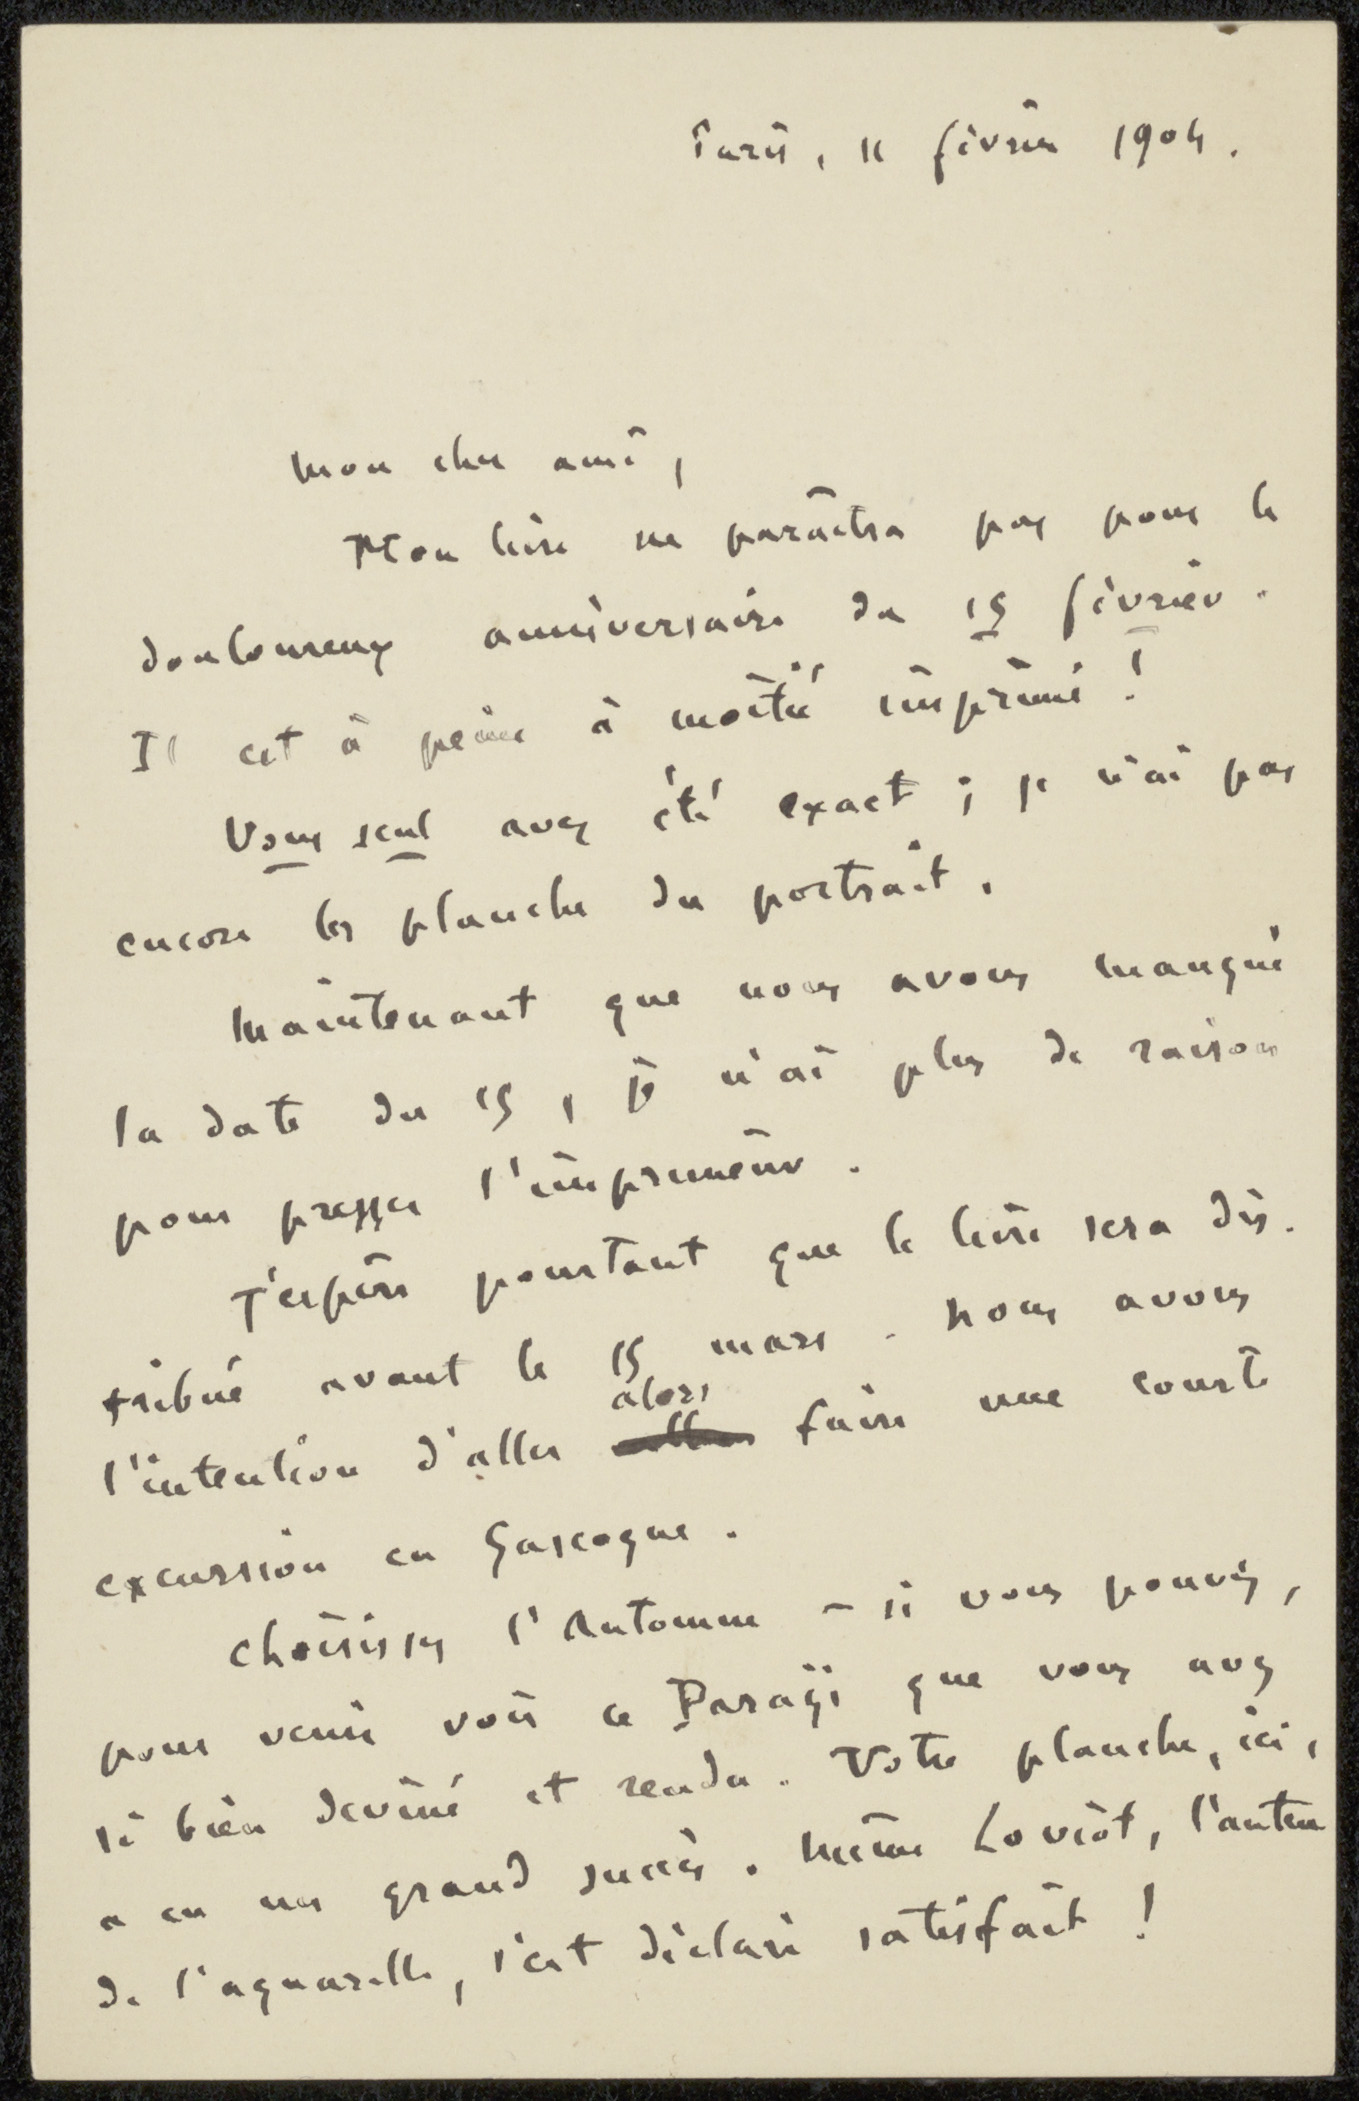 Paris, 11 février 1904.
Mon cher ami,
Mon livre ne paraîtra pas pour le
douloureux anniversaire du 15 février.
Il est à peine à moitié imprimé !
Vous seul avez été exact ; je n'ai pas
encore les planches du portrait.
Maintenant que nous avons manqué
la date du 15, je n'ai plus de raison
pour presser l'imprimeur.
J'espère pourtant que le livre sera dis-
tribué avant le 15 mars. Nous avons
l'intention d'aller alors faire une courte
excursion en Gascogne.
Choisissez l'Automne – si vous pouvez,
pour venir voir ce Paragi que vous avez
si bien deviné et rendu. Votre planche, ici,
a eu un grand succès. Même Loviot, l'auteur
de l'aquarelle, s'est déclaré satisfait !